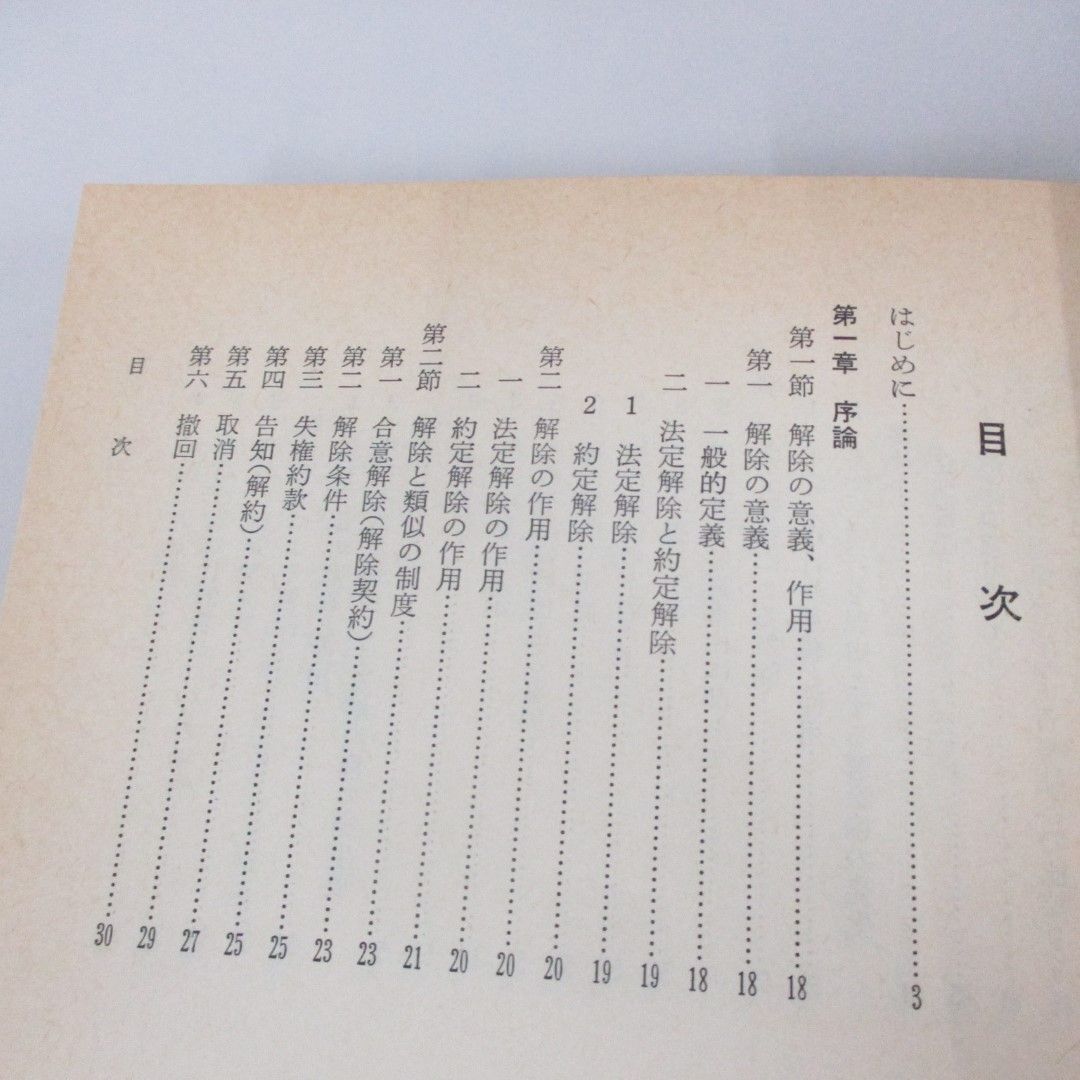 目次
はじめに……………3
第一章 序論
第一節 解除の意義、作用……………18
第一 解除の意義……………18
一 一般的定義……………18
二 法定解除と約定解除……………19
1 法定解除……………19
2 約定解除……………20
第二 解除の作用……………20
一 法定解除の作用……………20
二 約定解除の作用……………21
第二節 解除と類似の制度……………23
第一 合意解除(解除契約)……………23
第二 解除条件……………25
第三 失権約款……………25
第四 告知(解約)……………27
第五 取消……………29
第六 撤回……………30
目次